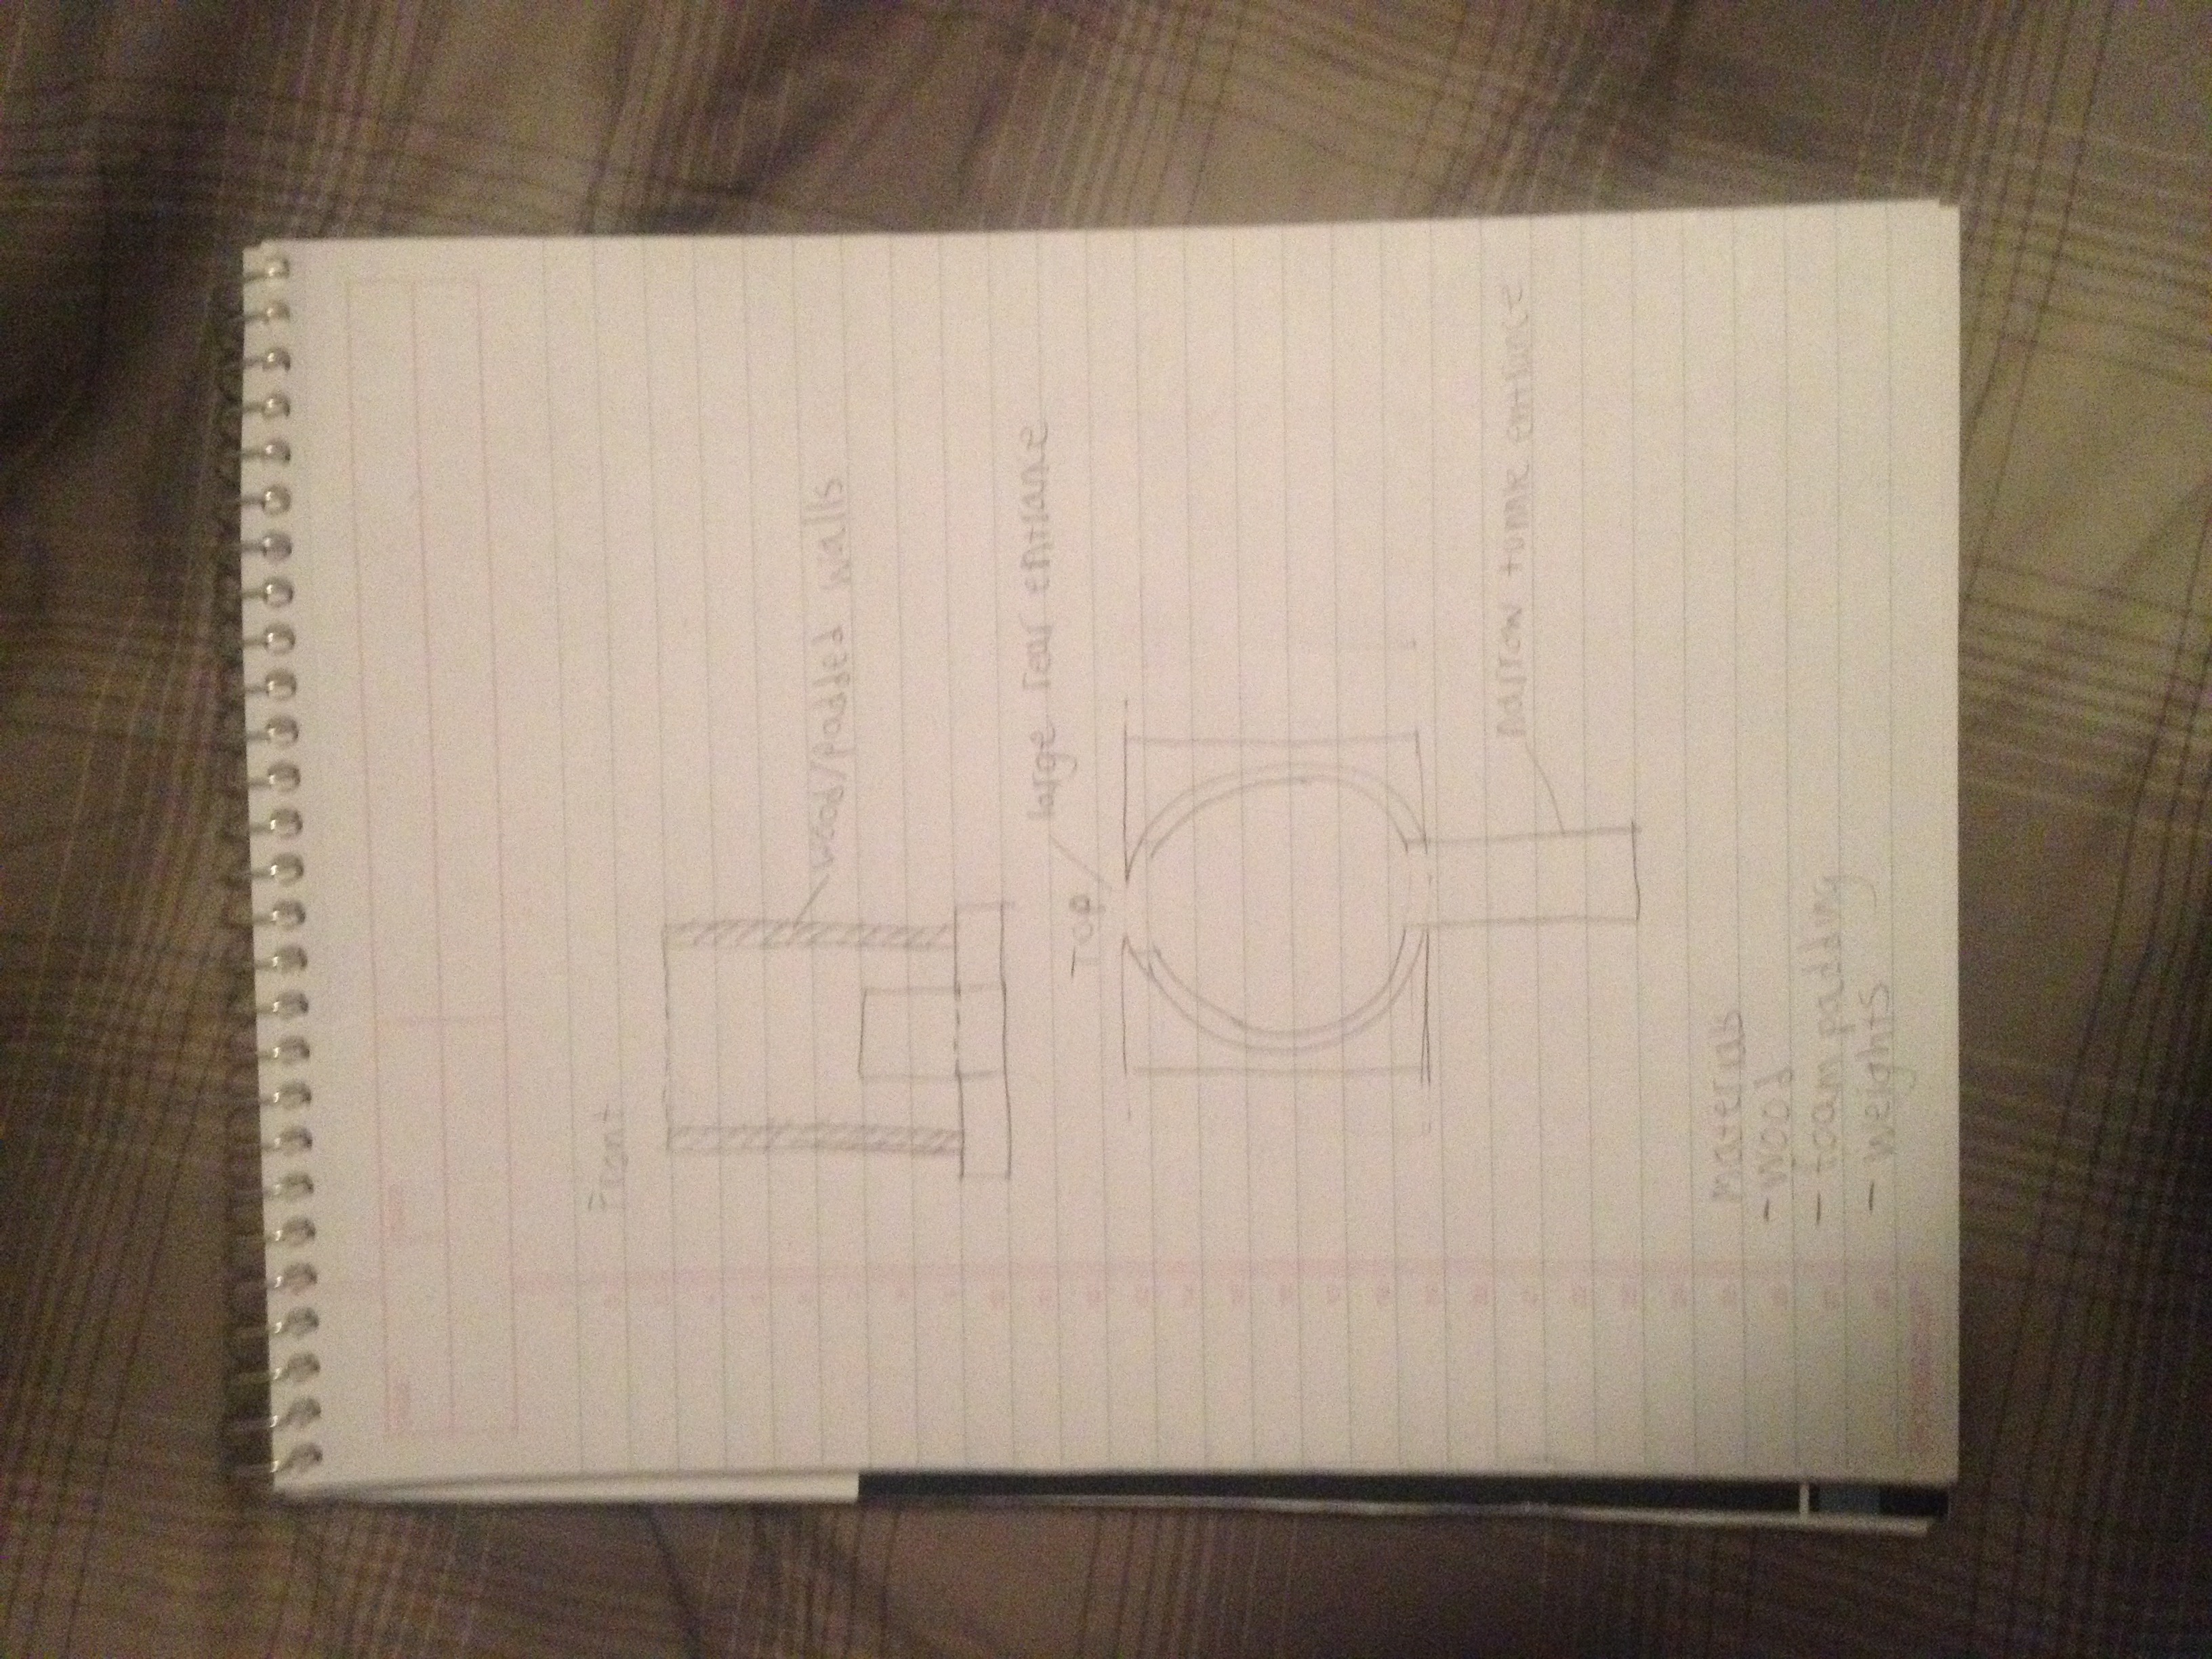 Front
wood/padded walls
large rear entrance
TOP
narrow tunnle entrance
Materials
- wood
- foam padding
- weights